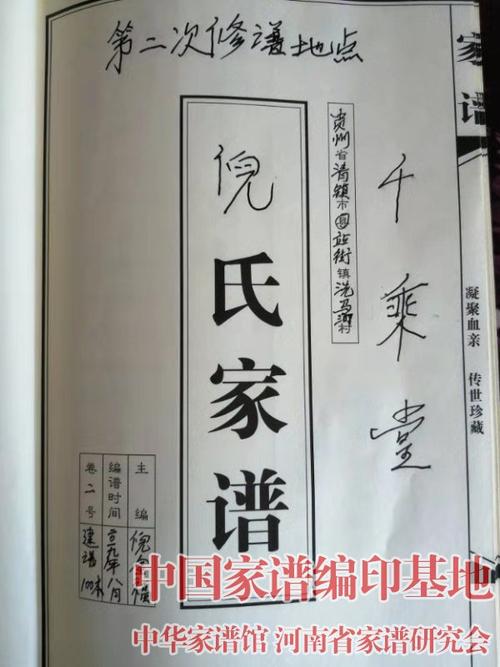 第二次修谱地点
家谱
凝聚血亲 传世珍藏
千乘堂
贵州省清镇市站街镇洗马河村
倪氏家谱
主编 倪
编谱时间 二〇一九年八月
卷二号 建谱100本
中国家谱编印基地
中华家谱馆 河南省家谱研究会